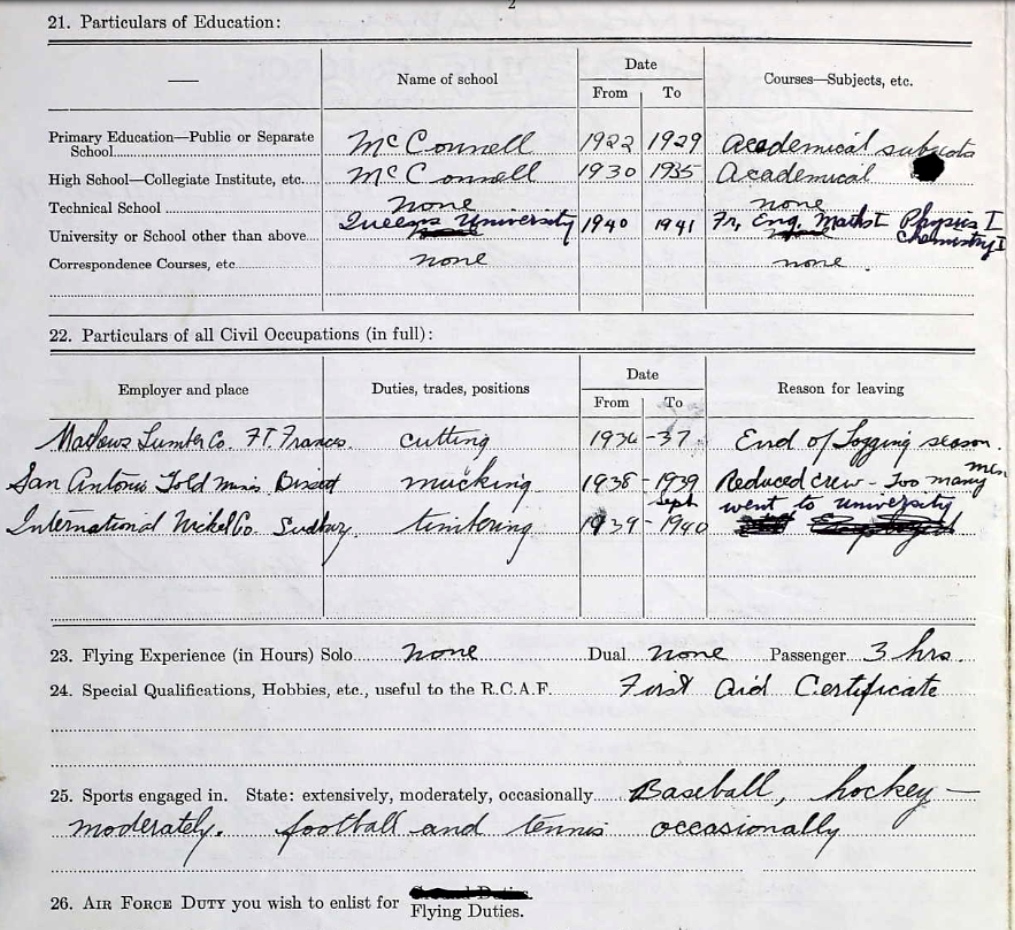 2
21. Particulars of Education:
— Name of school Date Courses—Subjects, etc.
From To
Primary Education—Public or Separate School McConnell 1922 1929 Academical subjects
High School—Collegiate Institute, etc. McConnell 1930 1935 Academical
Technical School none none
University or School other than above Queens University 1940 1941 Fr, Eng. Maths I Physics I Chemistry I
Correspondence Courses, etc none none.
22. Particulars of all Civil Occupations (in full):
Employer and place Duties, trades, positions Date Reason for leaving
From To
Mathews Lumber Co. Ft. Frances. cutting 1936 -37. End of Logging season.
San Antonio Gold Mines Bissett mucking 1938 - 1939 Reduced crew - Too many men
International Nickel Co. Sudbury. timbering 1939 - Sept 1940 went to university
23. Flying Experience (in Hours) Solo none Dual none Passenger 3 hrs.
24. Special Qualifications, Hobbies, etc., useful to the R.C.A.F. First Aid Certificate
25. Sports engaged in. State: extensively, moderately, occasionally Baseball, hockey —
moderately. football and tennis occasionally
26. AIR FORCE DUTY you wish to enlist for Ground Duties.
Flying Duties.